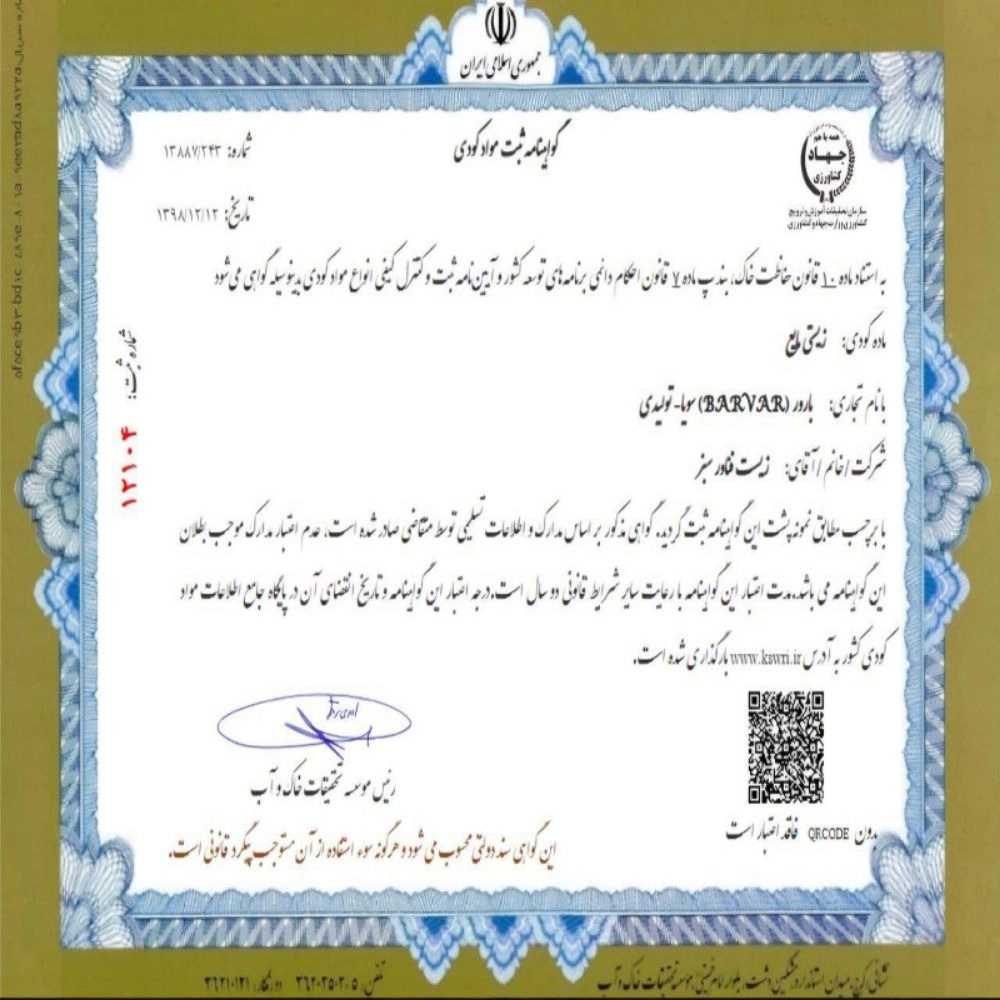 جمهوری اسلامی ایران
همه با هم
جهاد
کشاورزی
سازمان تحقیقات، آموزش و ترویج
گواهینامه ثبت مواد کودی
شماره: ۱۳۸۸۷/۲۴۳
تاریخ: ۱۳۹۸/۱۲/۱۲
به استناد ماده ۱۰ قانون حفاظت خاک، بند پ ماده ۷ قانون احکام دائمی برنامه‌های توسعه کشور و آیین نامه ثبت و کنترل کیفی انواع مواد کودی بدینوسیله گواهی می شود
ماده کودی: زیستی مایع
با نام تجاری: بارور (BARVAR) سویا- تولیدی
شرکت /خانم /آقای: زیست فناور سبز
با برچسب مطابق نمونه پشت این گواهینامه ثبت گردید. گواهی مذکور بر اساس مدارک و اطلاعات تسلیمی توسط متقاضی صادر شده است، عدم اعتبار مدارک موجب بطلان
این گواهینامه می باشد. مدت اعتبار این گواهینامه با رعایت سایر شرایط قانونی دو سال است. درجه اعتبار این گواهینامه و تاریخ انقضای آن در پایگاه جامع اطلاعات مواد
کودی کشور به آدرس www.kswri.ir بارگذاری شده است.
شماره ثبت: ۱۲۱۰۴
رئیس موسسه تحقیقات خاک و آب
بدون QRCODE فاقد اعتبار است
این گواهی سند دولتی محسوب می شود و هرگونه سوء استفاده از آن مستوجب پیگرد قانونی است.
نشانی: کرج، میدان استاندارد، مشکین دشت، بلوار امام خمینی، موسسه تحقیقات خاک و آب
تلفن: ۵-۳۶۲۰۲۵۰۲ دورنگار: ۳۶۲۱۰۱۲۱